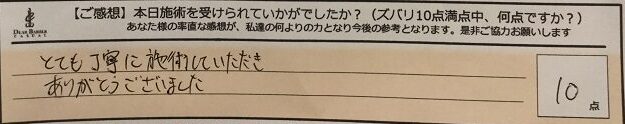 【ご感想】本日施術を受けられていかがでしたか？（ズバリ10点満点中、何点ですか？）
あなた様の率直な感想が、私達の何よりの力となり今後の参考となります。是非ご協力お願いします
DEAR BARBER
とても丁寧に施術していただき
ありがとうございました
10点